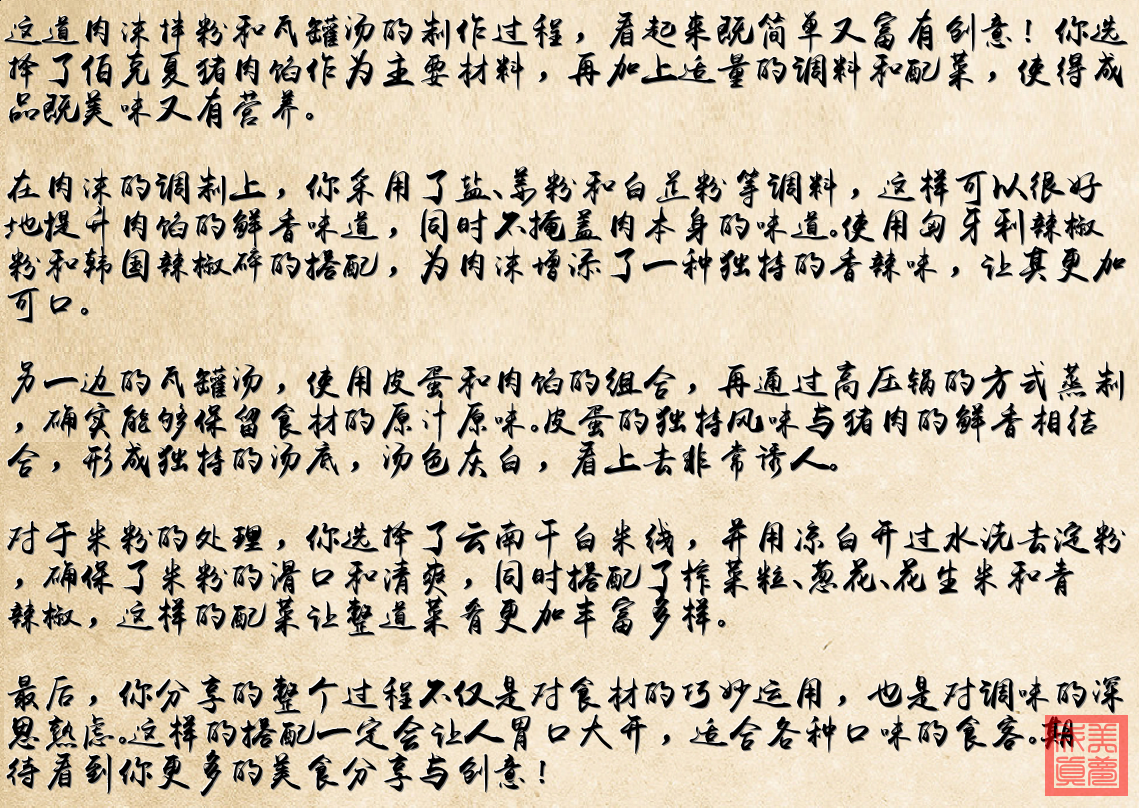 这道肉沫拌粉和瓦罐汤的制作过程，看起来既简单又富有创意！你选
择了伯克夏猪肉馅作为主要材料，再加上适量的调料和配菜，使得成
品既美味又有营养。
在肉沫的调制上，你采用了盐、姜粉和白芷粉等调料，这样可以很好
地提升肉馅的鲜香味道，同时不掩盖肉本身的味道。使用匈牙利辣椒
粉和韩国辣椒碎的搭配，为肉沫增添了一种独特的香辣味，让其更加
可口。
另一边的瓦罐汤，使用皮蛋和肉馅的组合，再通过高压锅的方式蒸制
，确实能够保留食材的原汁原味。皮蛋的独特风味与猪肉的鲜香相结
合，形成独特的汤底，汤色灰白，看上去非常诱人。
对于米粉的处理，你选择了云南干白米线，并用凉白开过水洗去淀粉
，确保了米粉的滑口和清爽，同时搭配了榨菜粒、葱花、花生米和青
辣椒，这样的配菜让整道菜肴更加丰富多样。
最后，你分享的整个过程不仅是对食材的巧妙运用，也是对调味的深
思熟虑。这样的搭配一定会让人胃口大开，适合各种口味的食客。期
待看到你更多的美食分享与创意！